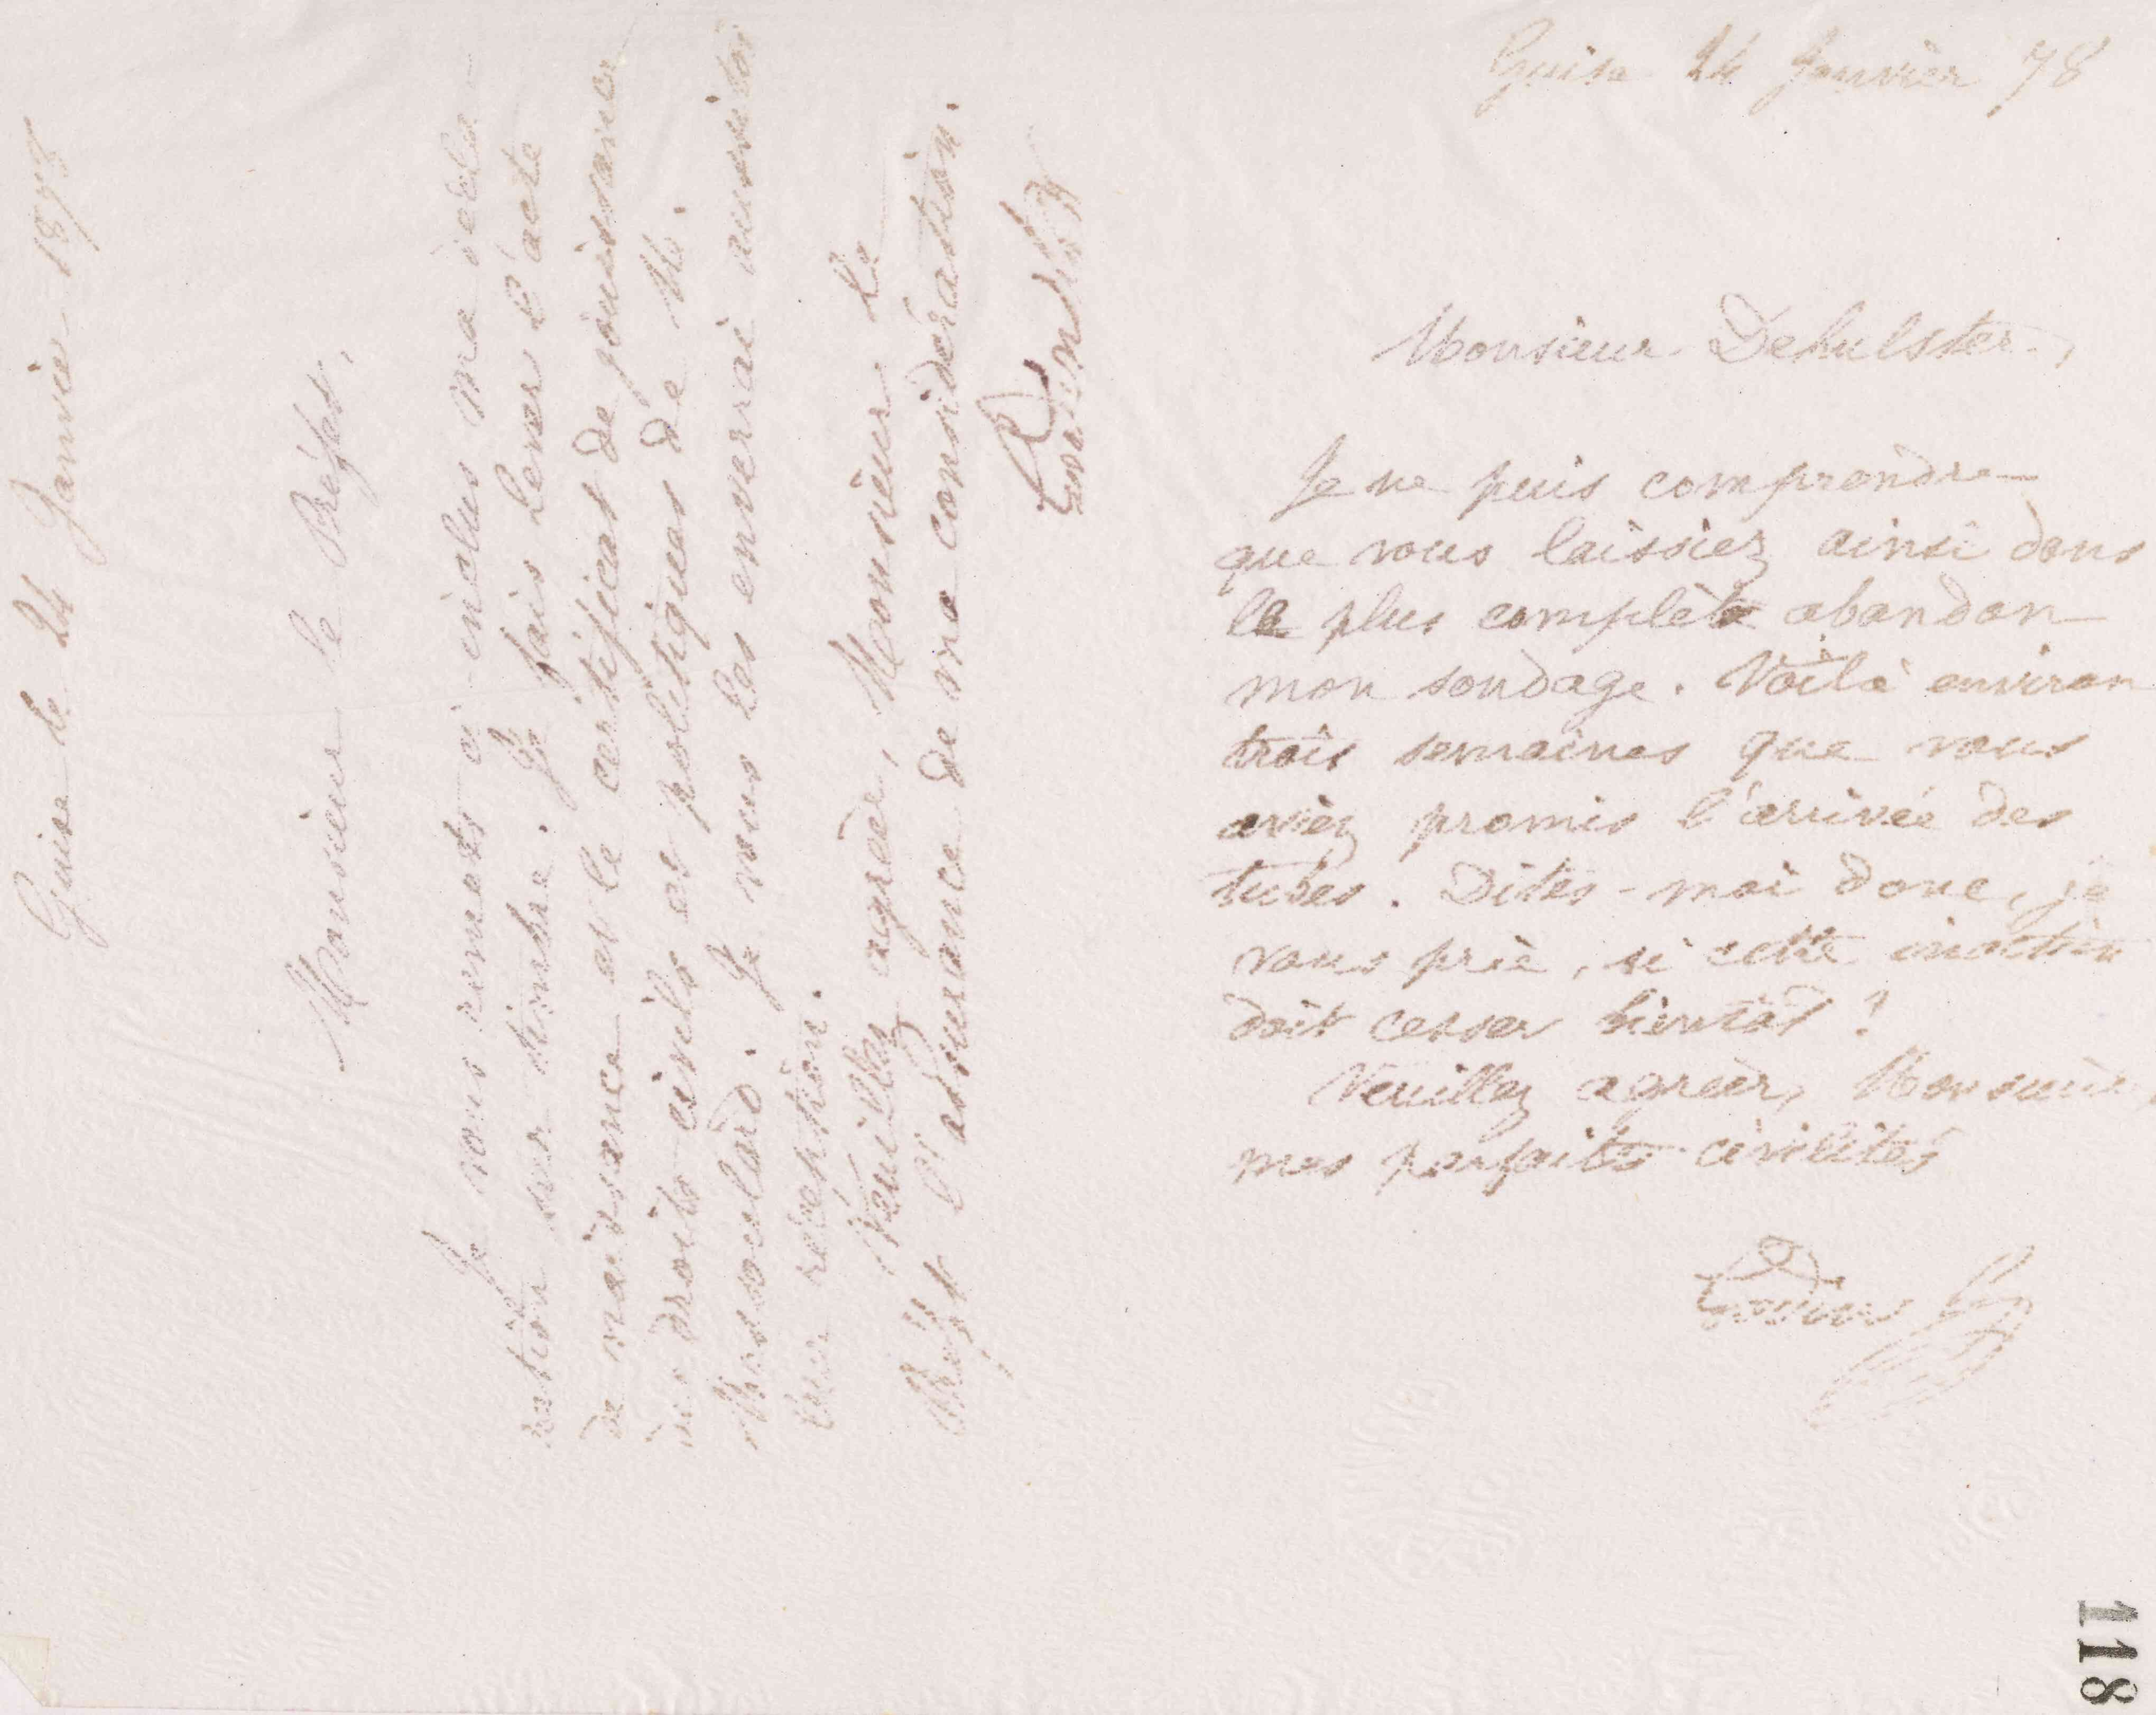 Guise le 24 Janvier 1878
Monsieur le Préfet,
Je vous remets ci-inclus ma décla-
ration sur timbre. Je fais lever l'acte
de naissance et le certificat de jouissance
des droits civils et politiques de M.
Massoulard. Je vous les enverrai aussitôt
leur réception.
Veuillez agréer, Monsieur le
Préfet l'assurance de ma considération.
Godin
Guise 24 Janvier 78
Monsieur Dehulster,
Je ne puis comprendre
que vous laissiez ainsi dans
le plus complet abandon
mon sondage. Voilà environ
trois semaines que vous
aviez promis l'arrivée des
tubes. Dites-moi donc, je
vous prie, si cette inaction
doit cesser bientôt ?
Veuillez agréer, Monsieur,
mes parfaites civilités
Godin
118